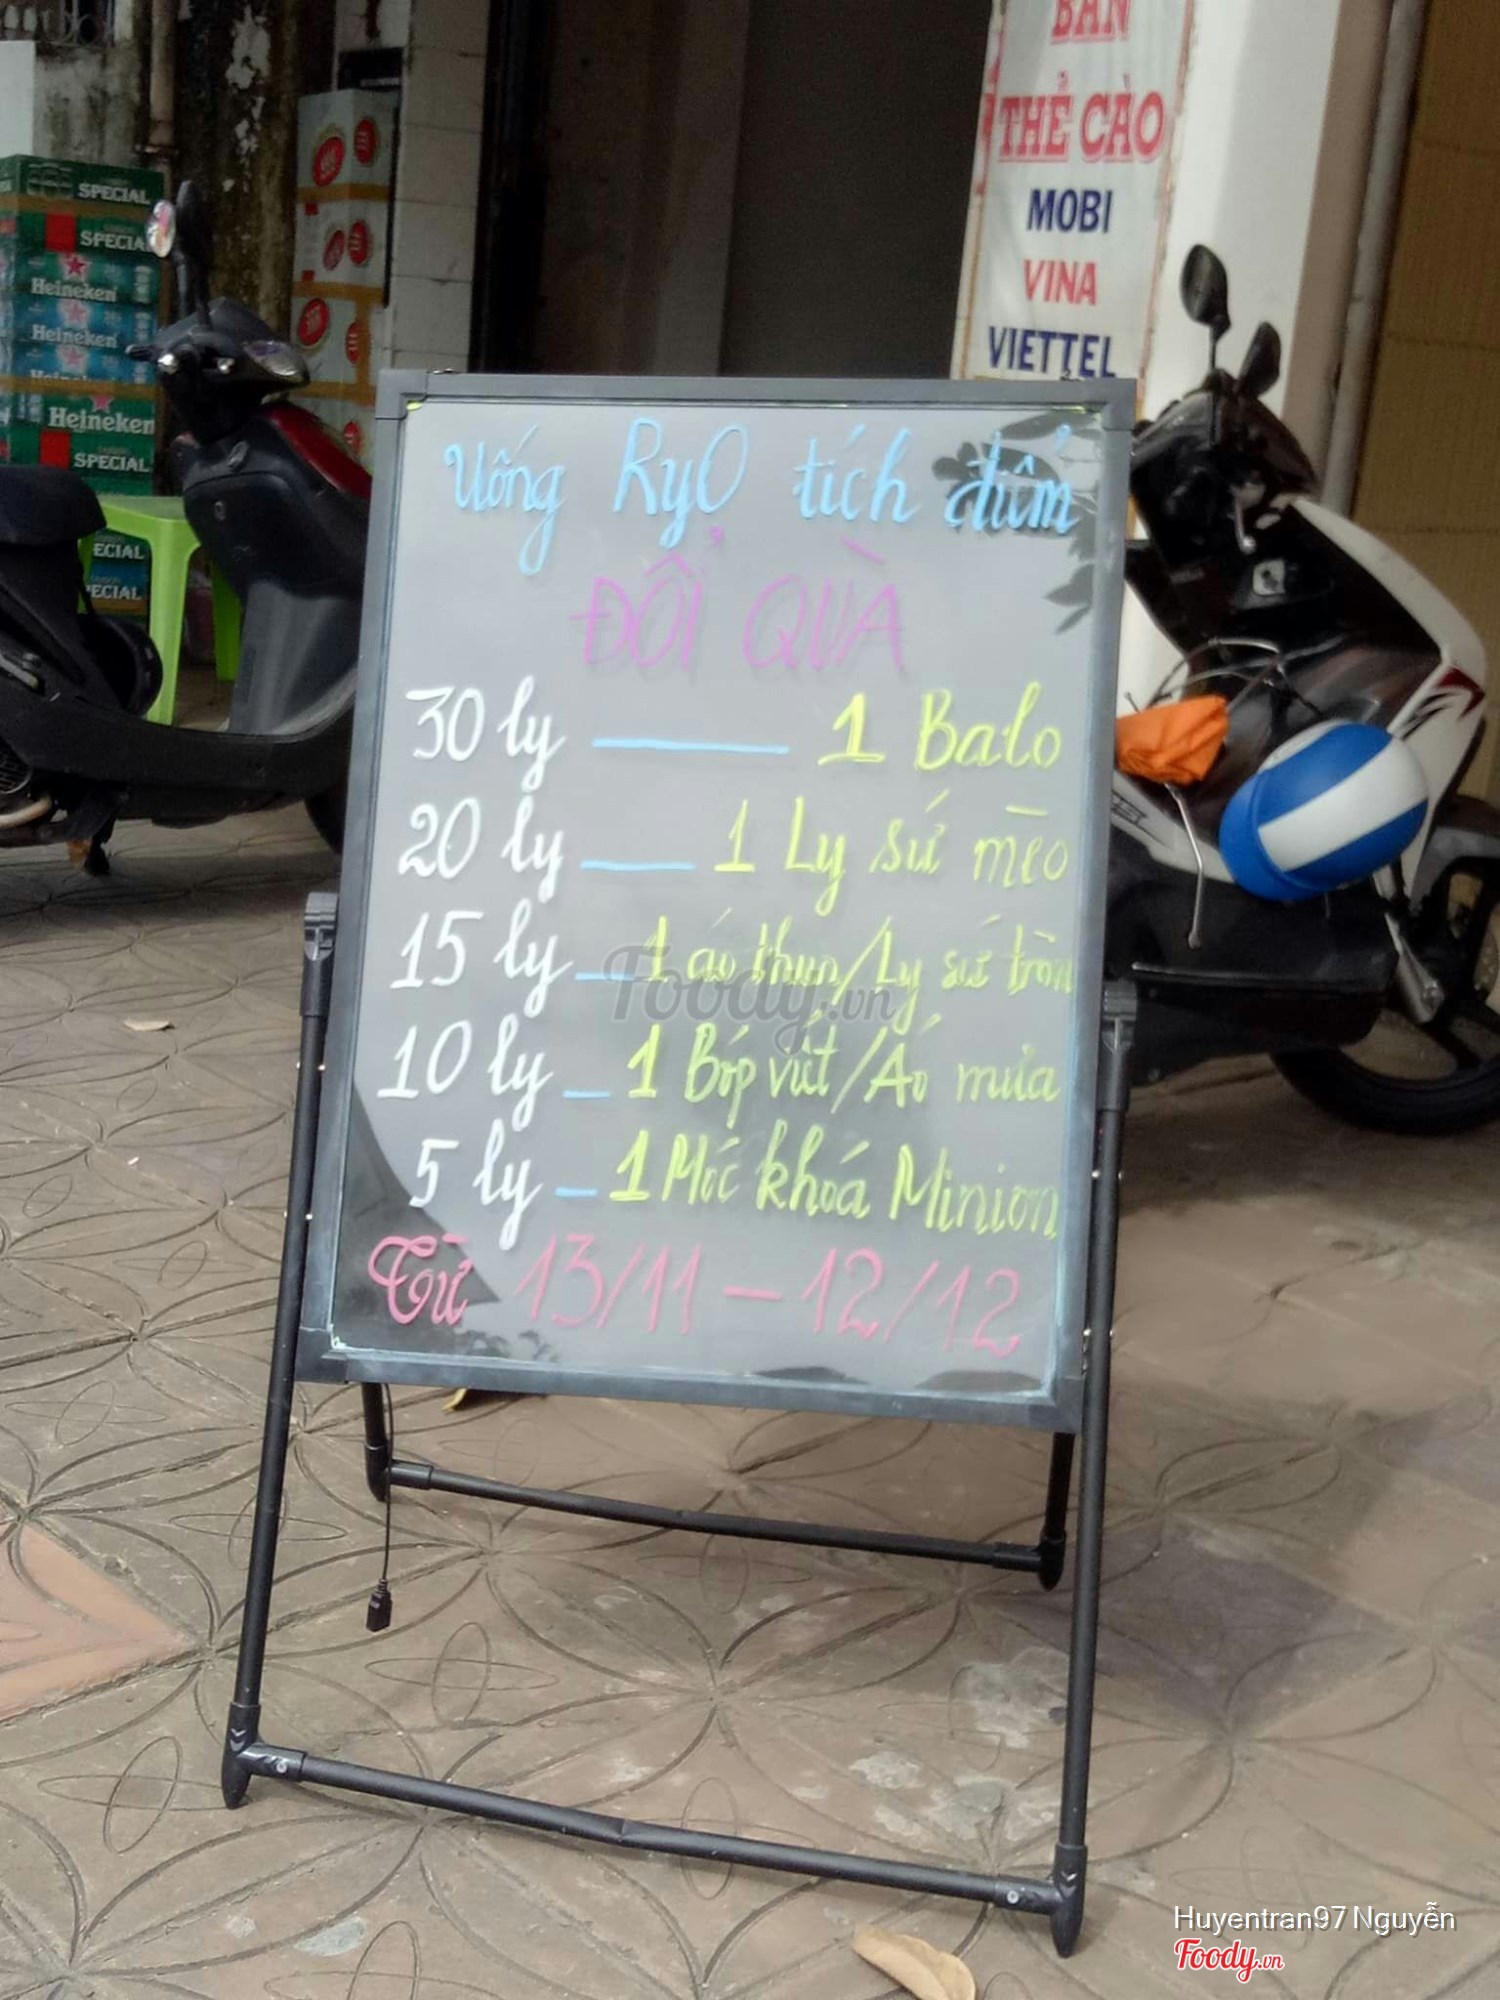 BÁN
THẺ CÀO
MOBI
VINA
VIETTEL
SPECIAL
SPECIAL
Heineken
Heineken
Heineken
SPECIAL
ECIAL
PECIAL
Uống RyO tích điểm
ĐỔI QUÀ
30 ly — 1 Balo
20 ly — 1 Ly sứ mèo
15 ly – 1 áo thun/Ly sứ tròn
10 ly – 1 Bóp viết/Áo mưa
5 ly – 1 Móc khoá Minion
Từ 13/11 – 12/12
Foody.vn
Huyentran97 Nguyễn
Foody.vn